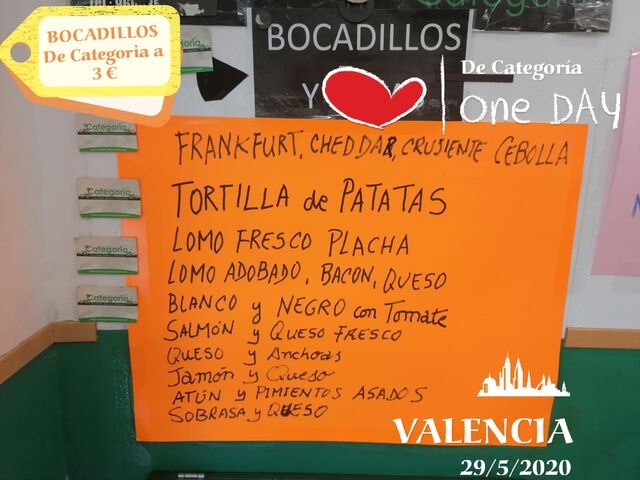 BOCADILLOS
De Categoria a
3 €
Categoría
BOCADILLOS
Y
De Categoría
one DAY
Categoria
FRANKFURT, CHEDDAR, CRUJIENTE CEBOLLA
Categoria
TORTILLA de PATATAS
Categoria
LOMO FRESCO PLACHA
LOMO ADOBADO, BACON, QUESO
Categoria
BLANCO y NEGRO con Tomate
SALMÓN y QUESO FRESCO
QUESO y Anchoas
Jamón y Queso
ATÚN y PIMIENTOS ASADOS
SOBRASA y QUESO
VALENCIA
29/5/2020